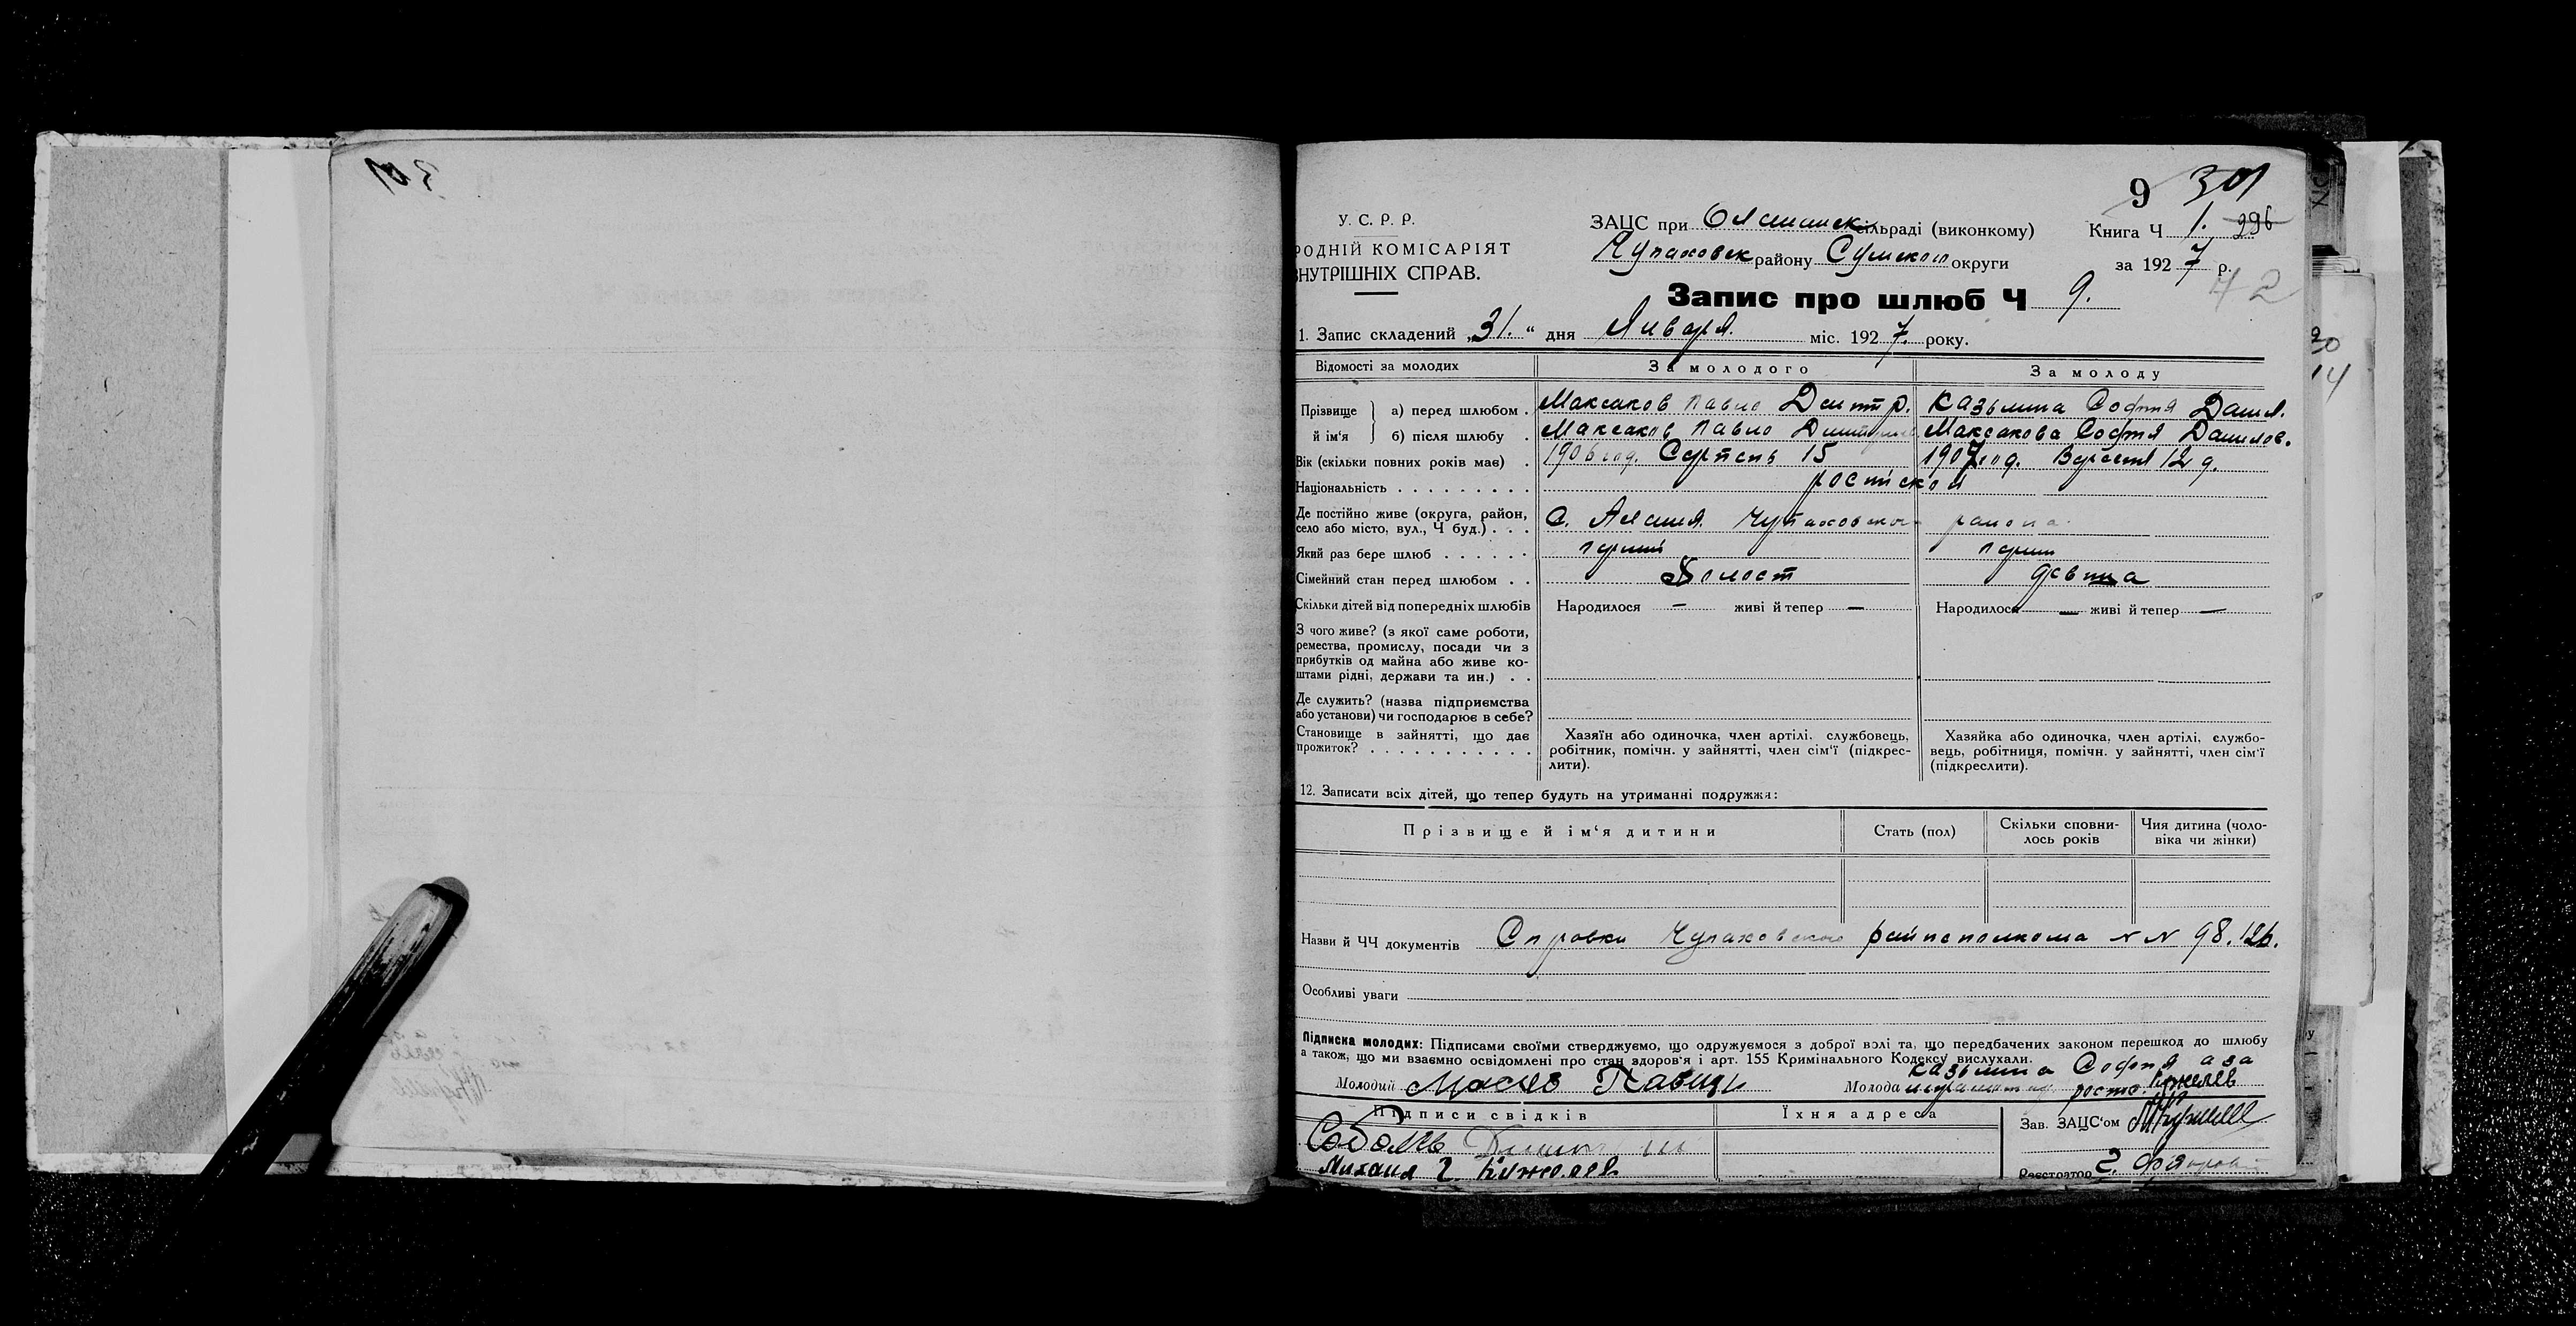 9 301
У. С. Р. Р.
РОДНІЙ КОМІСАРІЯТ
ВНУТРІШНІХ СПРАВ.
ЗАЦС при Олешинск сільраді (виконкому) Книга Ч 1. 296
Чупаховск району Сумской округи за 1927 р.
42
Запис про шлюб Ч 9.
1. Запис складений „31." дня Января. міс. 1927. року.
Відомості за молодих За молодого За молоду
Прізвище й ім'я а) перед шлюбом . Максаков Павло Дмитр. Казьмина Софія Данил.
б) після шлюбу . Максаков Павло Максакова Софія Данилов.
Вік (скільки повних років має) . 1906 год. Серпень 15 1907 год. Вересня 12 д.
Національність . . . . . . . . . . російской
Де постійно живе (округа, район, село або місто, вул., Ч буд.) . . . С. Алешня Чупаховского района.
Який раз бере шлюб . . . . . . перший перши
Сімейний стан перед шлюбом . . Холост девица
Скільки дітей від попередніх шлюбів Народилося — живі й тепер — Народилося — живі й тепер —
З чого живе? (з якої саме роботи,
ремества, промислу, посади чи з
прибутків од майна або живе ко-
штами рідні, держави та ин.) . .
Де служить? (назва підприємства
або установи) чи господарює в себе?
Становище в зайнятті, що дає прожиток? . . . . . . . . . . .
Хазяїн або одиночка, член артілі, службовець, робітник, помічн. у зайнятті, член сім'ї (підкрес-лити).
Хазяйка або одиночка, член артілі, службо-вець, робітниця, помічн. у зайнятті, член сім'ї (підкреслити).
12. Записати всіх дітей, що тепер будуть на утриманні подружжя:
Прізвище й ім'я дитини Стать (пол) Скільки сповни-лось років Чия дитина (чоло-віка чи жінки)
Назви й ЧЧ документів Справки Чупаховского райисполкома N N 98. 126.
Особливі уваги
Підписка молодих: Підписами своїми стверджуємо, що одружуємося з доброї волі та, що передбачених законом перешкод до шлюбу
а також, що ми взаємно освідомлені про стан здоров'я і арт. 155 Кримінального Кодексу вислухали.
Казьмина Софія а за
Молодий Молода
Підписи свідків Їхня адреса Зав. ЗАЦС'ом
Соболь
Михаил Г. Кужелев
Реєстратор